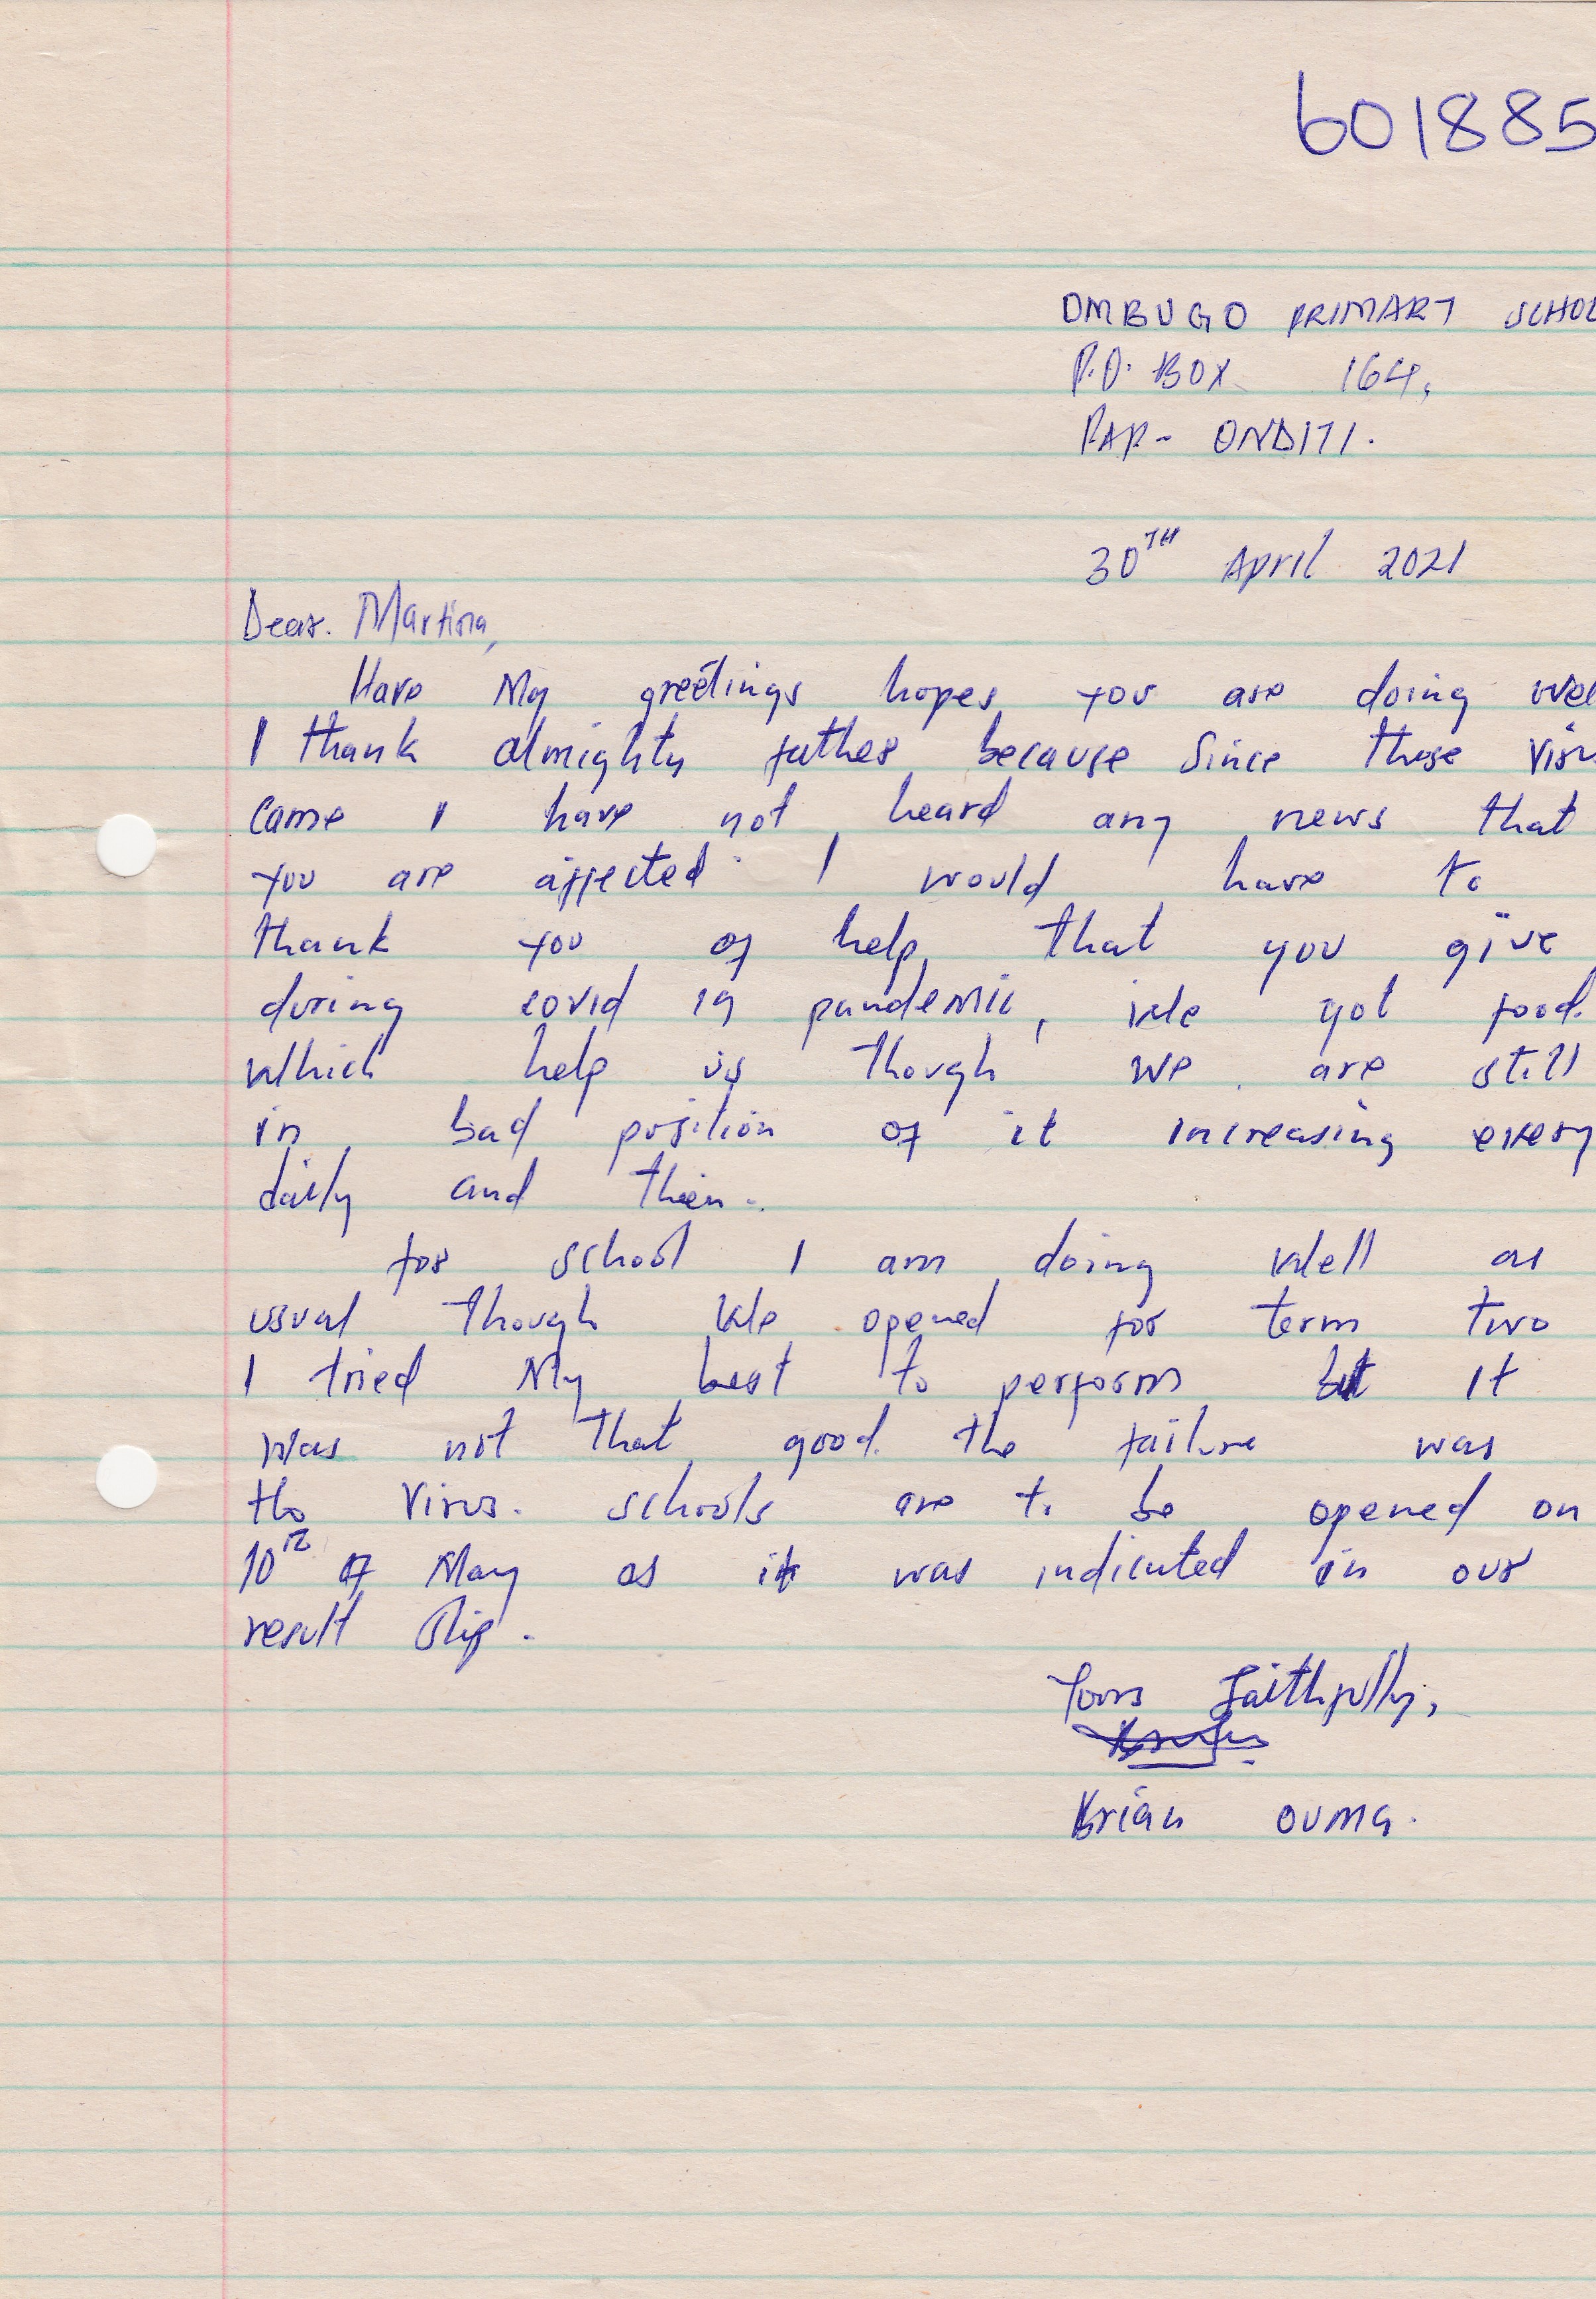 601885
OMBUGO PRIMARY SCHOO
P.O. BOX 164,
PAP- ONDITI.
30TH April 2021
Dear. Martina,
Have My greetings hopes you are doing wel
I thank almighty father because Since these Viru
came I have not heard any news that
you are affected. I would have to
thank you of help that you give
during covid 19 pandemic, we got food.
which help us though we are still
in bad position of it increasing every
daily and then.
for school I am doing well as
usual though we opened for term two
I tried My best to perform but it
was not that good. the failure was
the Virus. schools are to be opened on
10th of May as it was indicated in our
result slip.
Yours faithfully,
Brian Ouma.